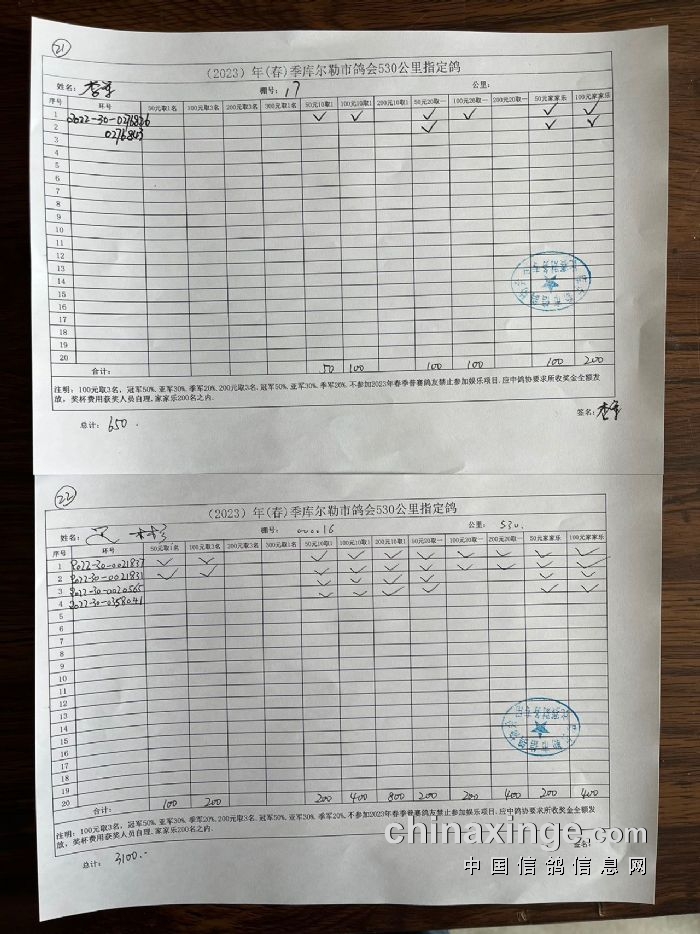 21
（2023）年(春)季库尔勒市鸽会530公里指定鸽
姓名： 棚号：17 公里：
序号 环号 50元取1名 100元取3名 200元取3名 300元取1名 50元10取1 100元10取1 200元10取1 50元20取一 100元20取一 200元20取一 50元家家乐 100元家家乐
1 2022-30-0276826 ✓ ✓ ✓ ✓ ✓ ✓
2 0276843 ✓ ✓ ✓
3
4
5
6
7
8
9
10
11
12
13
14
15
16
17
18
19
20
合计： 50 100 100 100 100 200
注明：100元取3名，冠军50%.亚军30%.季军20%.200元取3名.冠军50%.亚军30%.季军20%.不参加2023年春季普赛鸽友禁止参加娱乐项目.应中鸽协要求所收奖金全额发
放，奖杯费用获奖人员自理.家家乐200名之内.
总计：650. 签名：
22
（2023）年(春)季库尔勒市鸽会530公里指定鸽
姓名： 棚号：000016 公里：530.
序号 环号 50元取1名 100元取3名 200元取3名 300元取1名 50元10取1 100元10取1 200元10取1 50元20取一 100元20取一 200元20取一 50元家家乐 100元家家乐
1 2022-30-0021837 ✓ ✓ ✓ ✓ ✓ ✓ ✓ ✓ ✓ ✓
2 2022-30-0021831 ✓ ✓ ✓ ✓ ✓ ✓ ✓ ✓ ✓ ✓
3 2022-30-0020565 ✓ ✓ ✓ ✓ ✓ ✓
4 2022-30-0358041 ✓ ✓ ✓ ✓ ✓ ✓
5
6
7
8
9
10
11
12
13
14
15
16
17
18
19
20
合计： 100 200 200 400 800 200 200 400 200 400
注明：100元取3名，冠军50%.亚军30%.季军20%.200元取3名.冠军50%.亚军30%.季军20%.不参加2023年春季普赛鸽友禁止参加娱乐项目.应中鸽协要求所收奖金全额发
放，奖杯费用获奖人员自理.家家乐200名之内.
总计：3100.- 签名：
chinaxinge.com
中国信鸽信息网